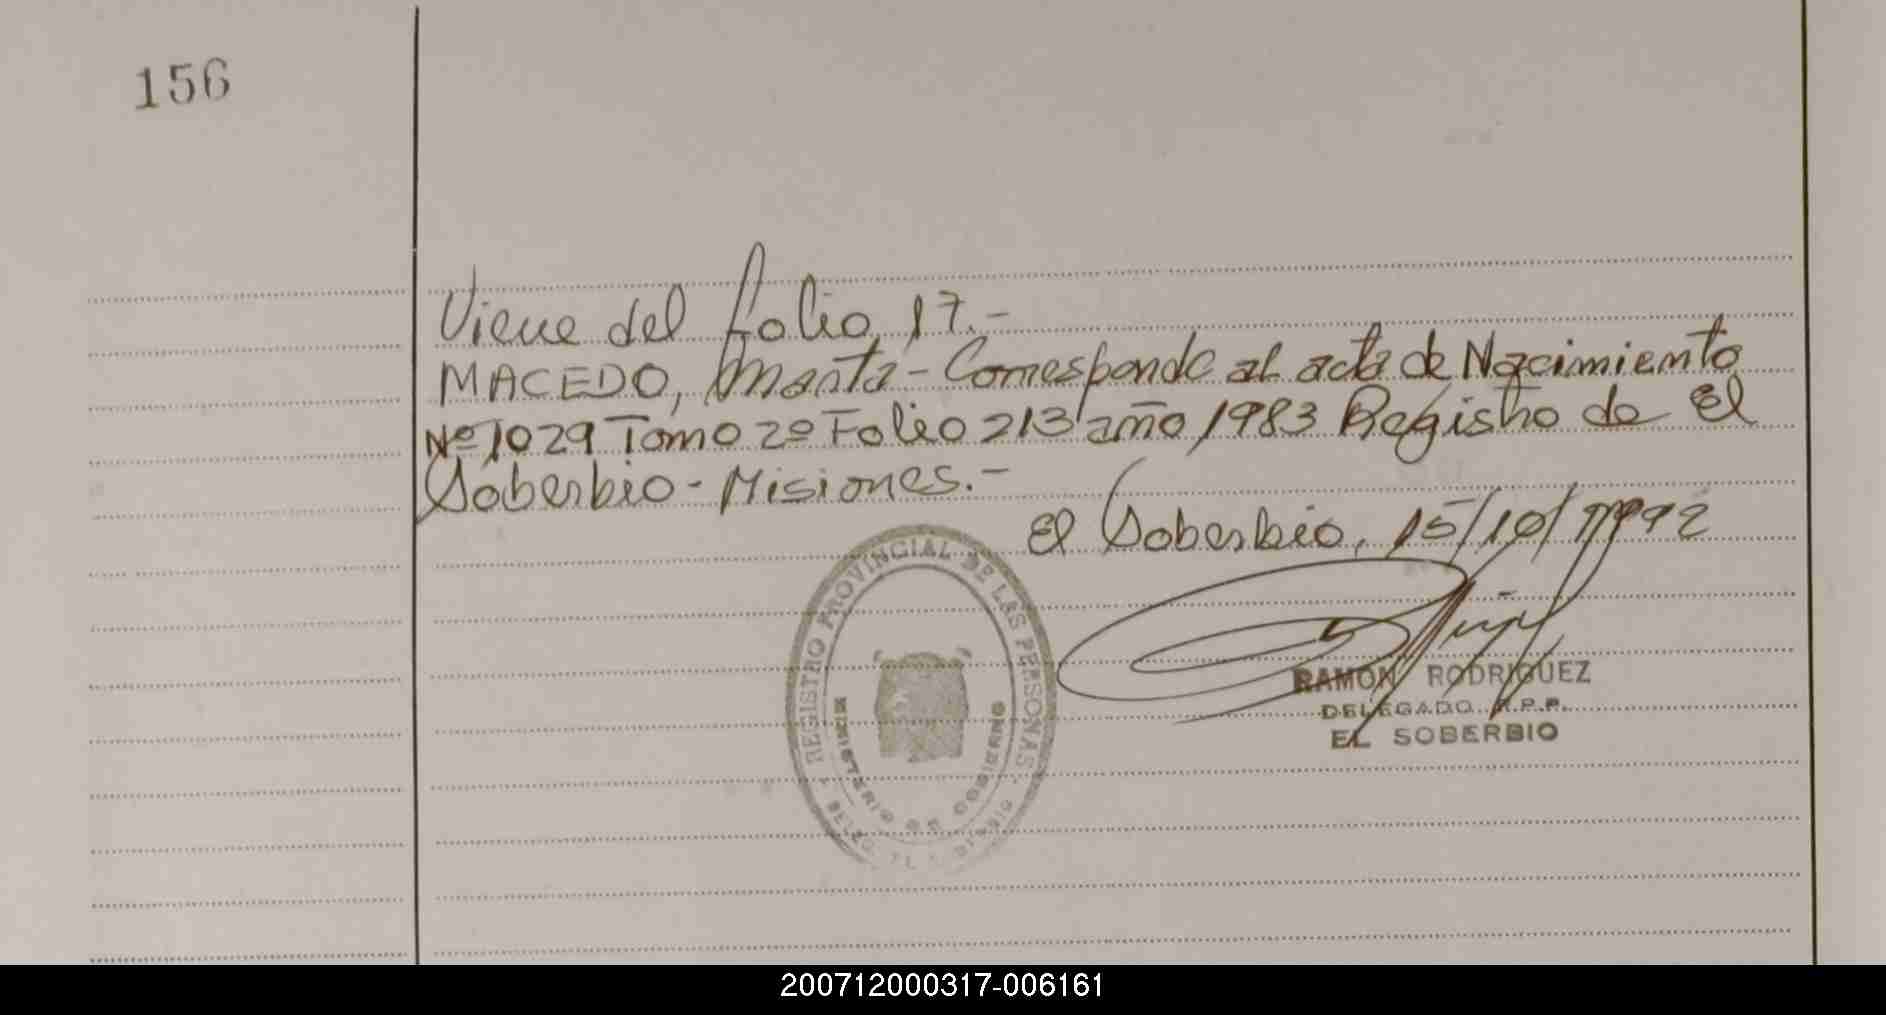 156
Viene del folio 17.-
MACEDO, Marta - Corresponde al acta de Nacimiento
Nº 1029 Tomo 2º Folio 213 año 1983 Registro de El
Soberbio - Misiones.-
El Soberbio, 15/10/1992
REGISTRO PROVINCIAL DE LAS PERSONAS
MINISTERIO DE GOBIERNO
RAMON RODRIGUEZ
DELEGADO R.P.P.
EL SOBERBIO
200712000317-006161